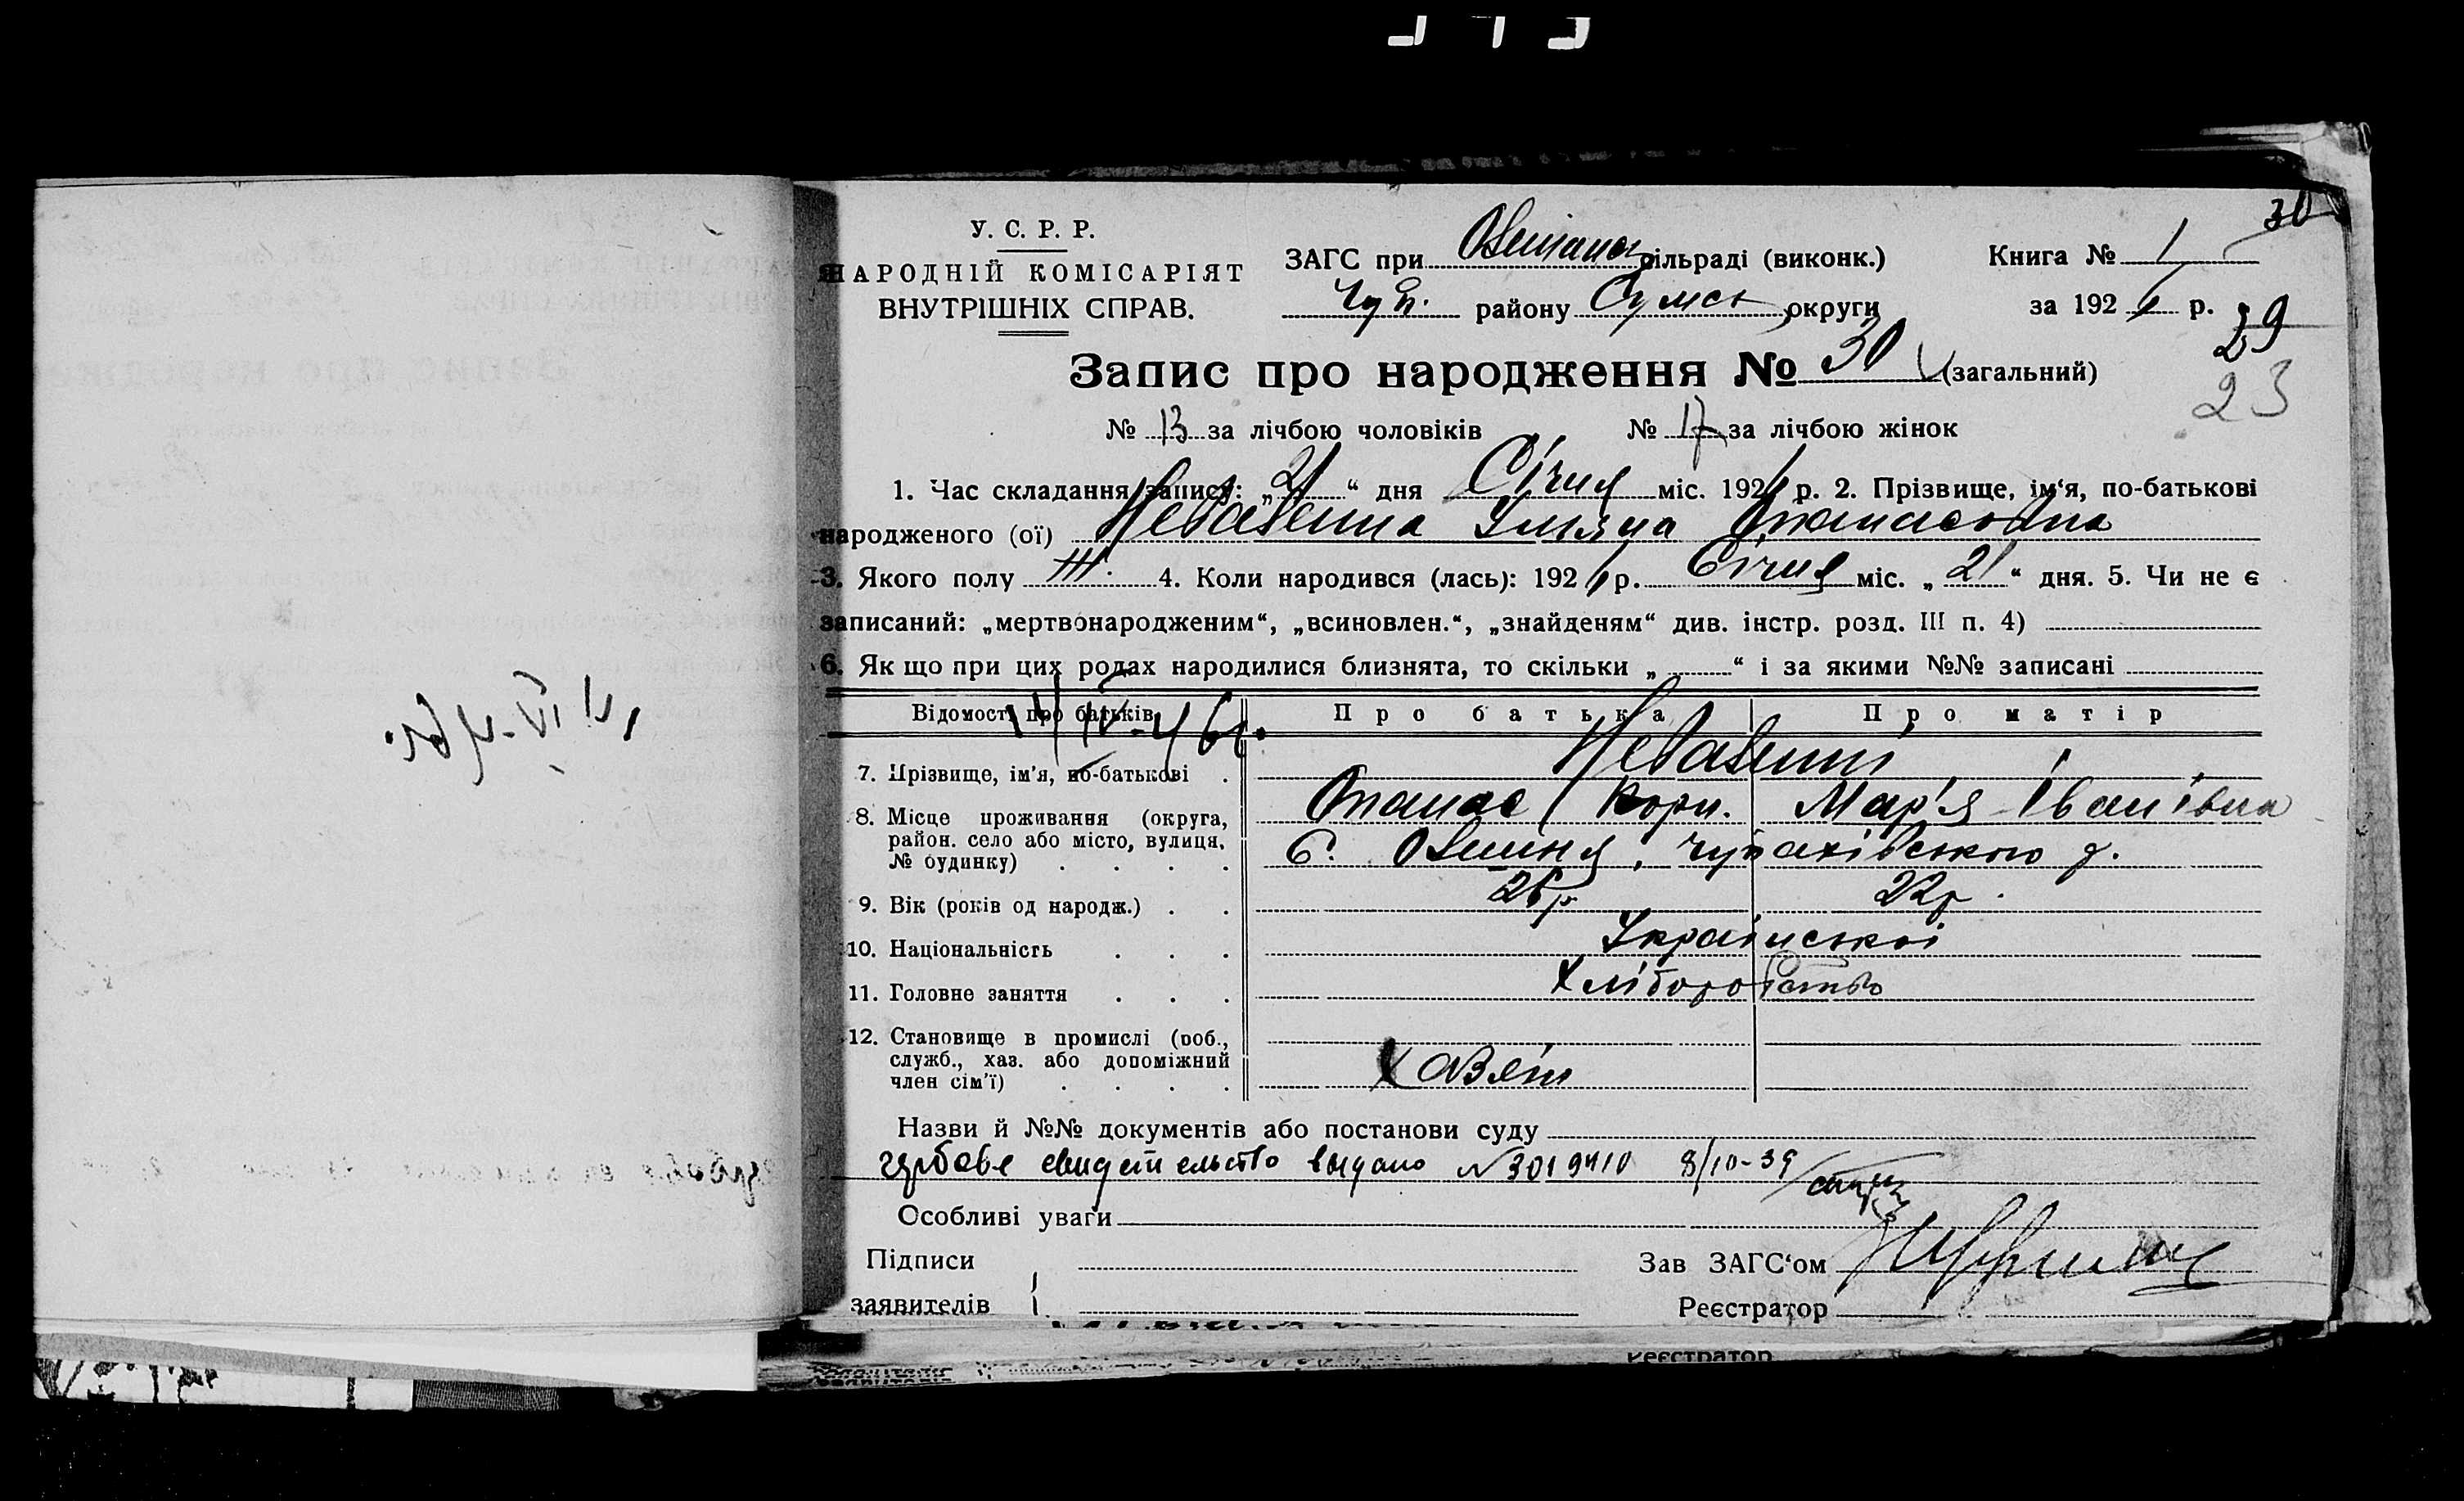 30
У. С. Р. Р.
НАРОДНІЙ КОМІСАРІЯТ
ВНУТРІШНІХ СПРАВ.
ЗАГС при сільраді (виконк.)
Чуп. району Сумськ округи
Книга № 1
за 192 р.
29
23
Запис про народження № 30 (загальний)
№ 13 за лічбою чоловіків № 17 за лічбою жінок
1. Час складання запису: „21“ дня Січня міс. 192 р. 2. Прізвище, ім‘я, по-батькові
народженого (ої) Уляна Опанасовна
3. Якого полу Ж. 4. Коли народився (лась): 192 р. Січня міс. „21“ дня. 5. Чи не є
записаний: „мертвонародженим“, „всиновлен.“, „знайденям“ див. інстр. розд. III п. 4)
6. Як що при цих родах народилися близнята, то скільки „ “ і за якими №№ записані
Відомості про батьків Про батька Про матір
7. Прізвище, ім‘я, по-батькові
Опанас Корн. Мар'я Іванівна
8. Місце проживання (округа,
район, село або місто, вулиця,
№ будинку)
с. Чупахівського р.
9. Вік (років од народж.) 26р 22р.
10. Національність Української
11. Головне заняття Хліборобство
12. Становище в промислі (роб.,
служб., хаз. або допоміжний
член сім‘ї)
Хазяїн
Назви й №№ документів або постанови суду
свидетельство выдано №3019410 8/10-39
Особливі уваги
Підписи
заявителів
Зав ЗАГС‘ом
Реєстратор
Реєстратор